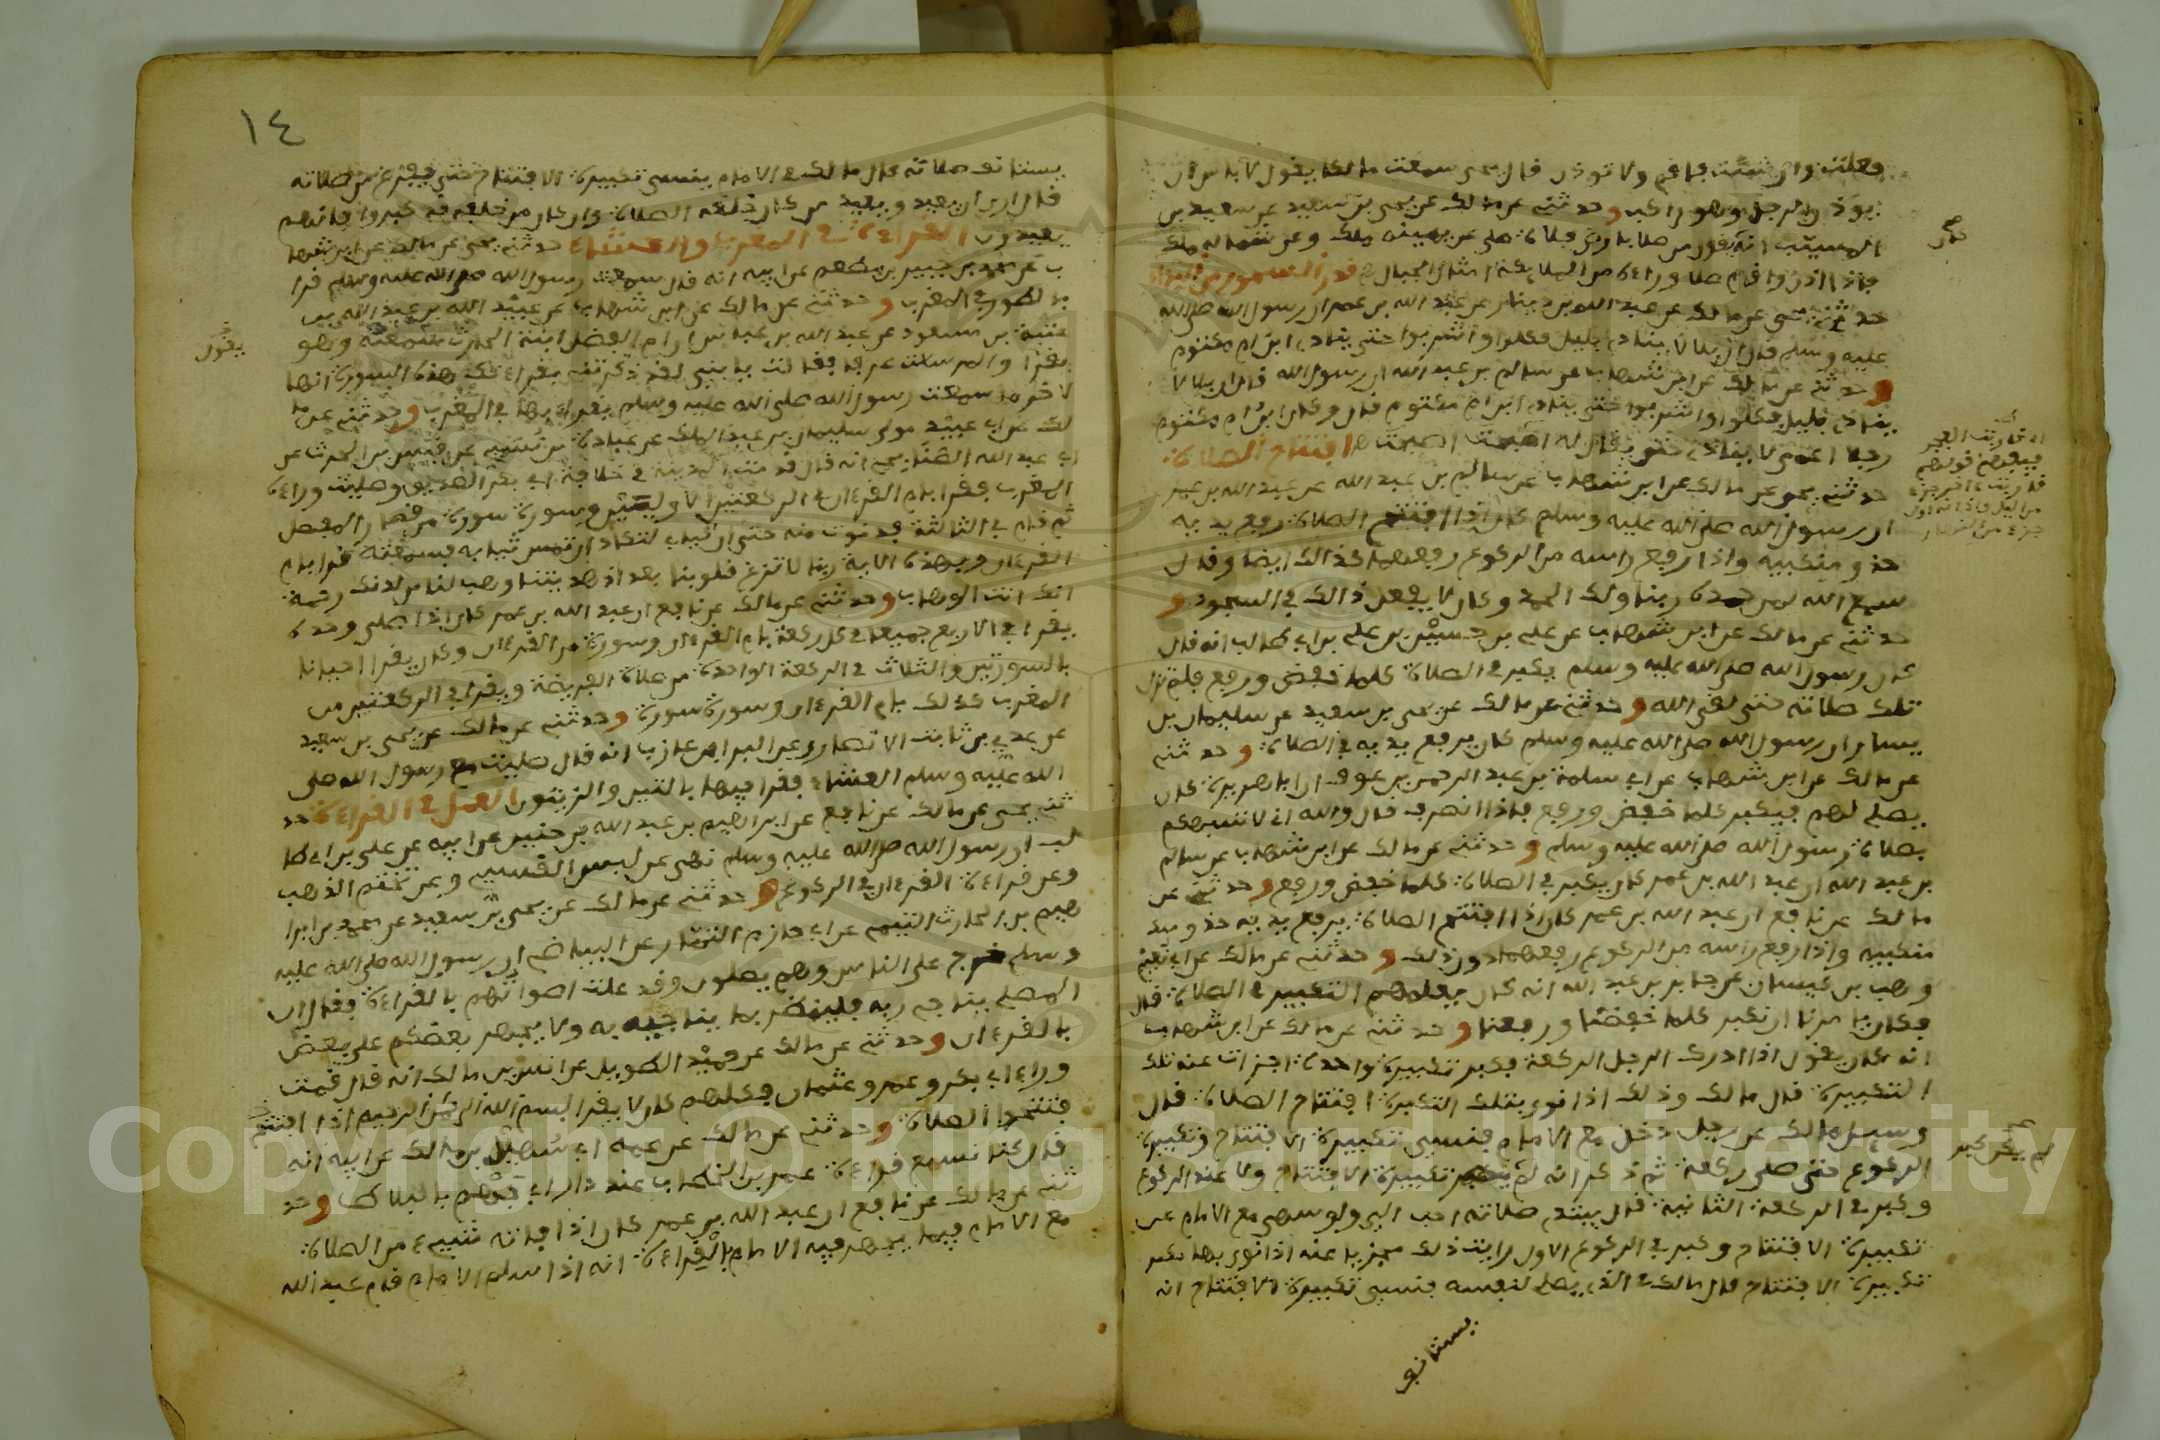 فعلت وان شئت فاقم ولا توذن قال يحيى سمعت مالكا يقول لا باس ان
يوذن الرجل وهو راكب وحدثني عن مالك عن يحيى بن سعيد عن سعيد بن
المسيب انه يقول من صلا بارض فلاة صلى عن يمينه ملك وعن شماله ملك
فاذا اذن واقام صلا وراءه من الملايكة امثال الجبال قدر السحور من النداء
حدثني يحيى عن مالك عن عبد الله بن دينار عن عبد الله بن عمر ان رسول الله صلى الله
عليه وسلم قال ان بلالا ينادي بليل فكلوا واشربوا حتى ينادي ابن ام مكتوم
وحدثني عن مالك عن ابن شهاب عن سالم بن عبد الله ان رسول الله قال ان بلالا
ينادي بليل فكلوا واشربوا حتى ينادي ابن ام مكتوم قال وكان ابن ام مكتوم
رجلا اعمى لا ينادي حتى يقال له اصبحت اصبحت افتتاح الصلاة
حدثني يحيى عن مالك عن ابن شهاب عن سالم بن عبد الله عن عبد الله بن عمر
ان رسول الله صلى الله عليه وسلم كان اذا افتتح الصلاة رفع يديه
حذو منكبيه واذا رفع راسه من الركوع رفعهما كذالك ايضا وقال
سمع الله لمن حمده ربنا ولك الحمد وكان لا يفعل ذالك في السجود و
حدثني عن مالك عن ابن شهاب عن علي بن حسين بن علي بن ابي طالب انه قال
كان رسول الله صلى الله عليه وسلم يكبر في الصلاة كلما خفض ورفع فلم تزل
تلك صلاته حتى لقي الله وحدثني عن مالك عن يحيى بن سعيد عن سليمان بن
يسار ان رسول الله صلى الله عليه وسلم كان يرفع يديه في الصلاة وحدثني
عن مالك عن ابن شهاب عن ابي سلمة بن عبد الرحمن بن عوف ان ابا هريرة كان
يصلي لهم فيكبر كلما خفض ورفع فاذا انصرف قال والله اني لاشبهكم
بصلاة رسول الله صلى الله عليه وسلم وحدثني عن مالك عن ابن شهاب عن سالم
بن عبد الله ان عبد الله بن عمر كان يكبر في الصلاة كلما خفض ورفع وحدثني عن
مالك عن نافع ان عبد الله بن عمر كان اذا افتتح الصلاة يرفع يديه حذو
منكبيه واذا رفع راسه من الركوع رفعهما دون ذلك وحدثني عن مالك عن ابي نعيم
وهب بن كيسان عن جابر بن عبد الله انه كان يعلمهم التكبير في الصلاة قال
فكان يامرنا ان نكبر كلما خفضنا ورفعنا وحدثني عن مالك عن ابن شهاب
انه كان يقول اذا ادرك الرجل الركعة فكبر تكبيرة واحدة اجزات عنه تلك
التكبيرة قال مالك وذلك اذا نوى بتلك التكبيرة افتتاح الصلاة قال
وسيل مالك عن رجل دخل مع الامام فنسي تكبيرة الافتتاح وتكبيرة
الركوع حتى صلى ركعة ثم ذكر انه لم يكبر تكبيرة الافتتاح ولا عند الركوع
وكبر في الركعة الثانية قال يبتدي صلاته احب الي ولو سهى مع الامام عن
تكبيرة الافتتاح وكبر في الركوع الاول رايت ذلك مجزيا عنه اذا نوى بها
تكبيرة الافتتاح قال مالك في الذي يصلي لنفسه فنسي تكبيرة الافتتاح انه
يستانف
لم يكن كبر
١٤
يستانف صلاته قال مالك في الامام ينسى تكبيرة الافتتاح حتى يفرغ من صلاته
قال ارى ان يعيد ويعيد من كان خلفه الصلاة وان كان من خلفه قد كبروا فانهم
يعيدون القراءة في المغرب والعشاء حدثني يحيى عن مالك عن ابن شها
ب عن محمد بن جبير بن مطعم عن ابيه انه قال سمعت رسول الله صلى الله عليه وسلم قرا
بالطور في المغرب وحدثني عن مالك عن ابن شهاب عن عبيد الله بن عبد الله بن
عتبة بن مسعود عن عبد الله بن عباس ان ام الفضل ابنة الحارث سمعته وهو
يقرا والمرسلات عرفا فقالت يا بني لقد ذكرتني بقراءتك هذه السورة انها
لاخر ما سمعت رسول الله صلى الله عليه وسلم يقرا بها في المغرب وحدثني عن ما
لك عن ابي عبيد مولى سليمان بن عبد الملك عن عبادة بن نسي عن قيس بن الحرث عن
ابي عبد الله الصنابحي انه قال قدمت المدينة في خلافة ابي بكر الصديق وصليت وراءه
المغرب فقرا بام القرءان في الركعتين الاوليين وسورة سورة من قصار المفصل
ثم قام في الثالثة فدنوت منه حتى ان ثيابي لتكاد ان تمس ثيابه فسمعته قرا بام
القرءان وبهذه الاية ربنا لا تزغ قلوبنا بعد اذ هديتنا وهب لنا من لدنك رحمة
انك انت الوهاب وحدثني عن مالك عن نافع ان عبد الله بن عمر كان اذا صلى وحده
يقرا في الاربع جميعا في كل ركعة بام القرءان وسورة من القرءان وكان يقرا احيانا
بالسورتين والثلاث في الركعة الواحدة من صلاة الفريضة ويقرا في الركعتين من
المغرب كذلك بام القرءان وسورة سورة وحدثني عن مالك عن يحيى بن سعيد
عن عدي بن ثابت الانصاري عن البراء بن عازب انه قال صليت مع رسول الله صلى
الله عليه وسلم العشاء فقرا فيها بالتين والزيتون العمل في القراءة حد
ثني يحيى عن مالك عن نافع عن ابراهيم بن عبد الله بن حنين عن ابيه عن علي بن ابي طا
لب ان رسول الله صلى الله عليه وسلم نهى عن لبس القسي وعن تختم الذهب
وعن قراءة القرءان في الركوع وحدثني عن مالك عن يحيى بن سعيد عن محمد بن ابرا
هيم بن الحارث التيمي عن ابي حازم التمار عن البياضي ان رسول الله صلى الله عليه
وسلم خرج على الناس وهم يصلون وقد علت اصواتهم بالقراءة فقال ان
المصلي يناجي ربه فلينظر بما يناجيه به ولا يجهر بعضكم على بعض
بالقرءان وحدثني عن مالك عن حميد الطويل عن انس بن مالك انه قال قمت
وراء ابي بكر وعمر وعثمان فكلهم كان لا يقرا بسم الله الرحمن الرحيم اذا
افتتحوا الصلاة وحدثني عن مالك عن عمه ابي سهيل بن مالك عن ابيه انه
قال كنا نسمع قراءة عمر بن الخطاب عند دار ابي جهم بالبلاط وحد
ثني عن مالك عن نافع ان عبد الله بن عمر كان اذا فاته شيء من الصلاة
مع الامام فيما يجهر فيه الامام بالقراءة انه اذا سلم الامام قام عبد الله
يقول
Copyright © King Saud University